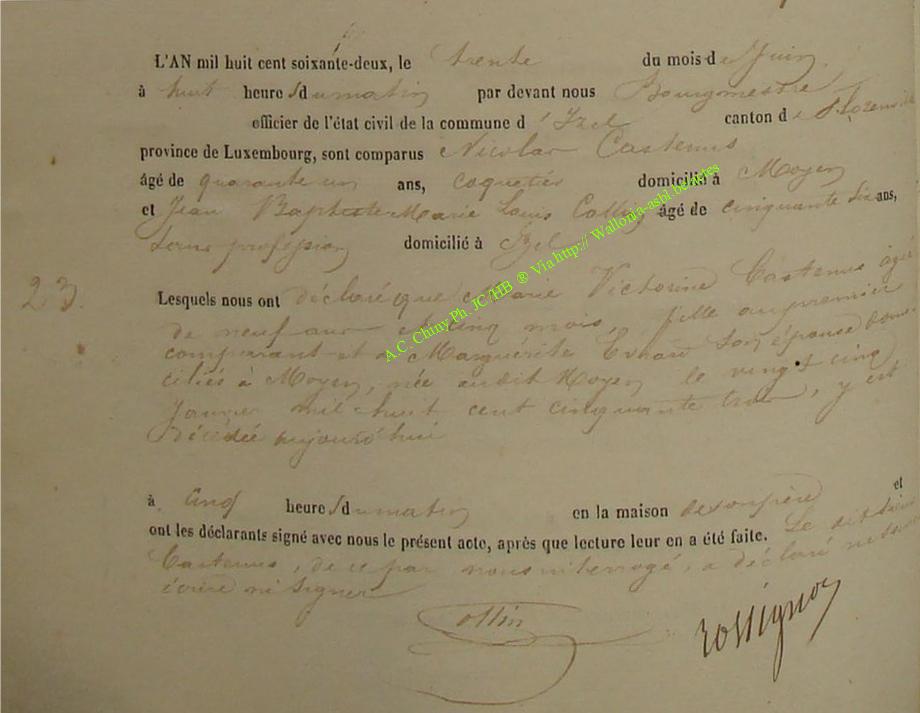 L'AN mil huit cent soixante-deux, le trente du mois de Juin
à huit heures du matin par devant nous Bourgmestre
officier de l'état civil de la commune d'Izel canton de Florenville
province de Luxembourg, sont comparus Nicolas Castenus
âgé de quarante un ans, coquetier domicilié à Moyen
et Jean Baptiste Marie Louis Collin âgé de cinquante six ans,
sans profession domicilié à Izel
23. Lesquels nous ont déclaré que Marie Victorine Castenus âgée
de neuf ans et cinq mois, fille au premier
comparant et à Marguérite Evrard son épouse domi-
ciliés à Moyen, née audit Moyen le vingt cinq
Janvier mil huit cent cinquante trois, y est
Décédée aujourd'hui
à cinq heures du matin en la maison de son père et
ont les déclarants signé avec nous le présent acte, après que lecture leur en a été faite. Le dit
Castenus, de ce par nous interrogé, a déclaré ne savoir
écrire ni signer
Collin Rossignon
A.C. Chiny Ph. JC/HB ® Via http:// Wallonia-asbl be/actes